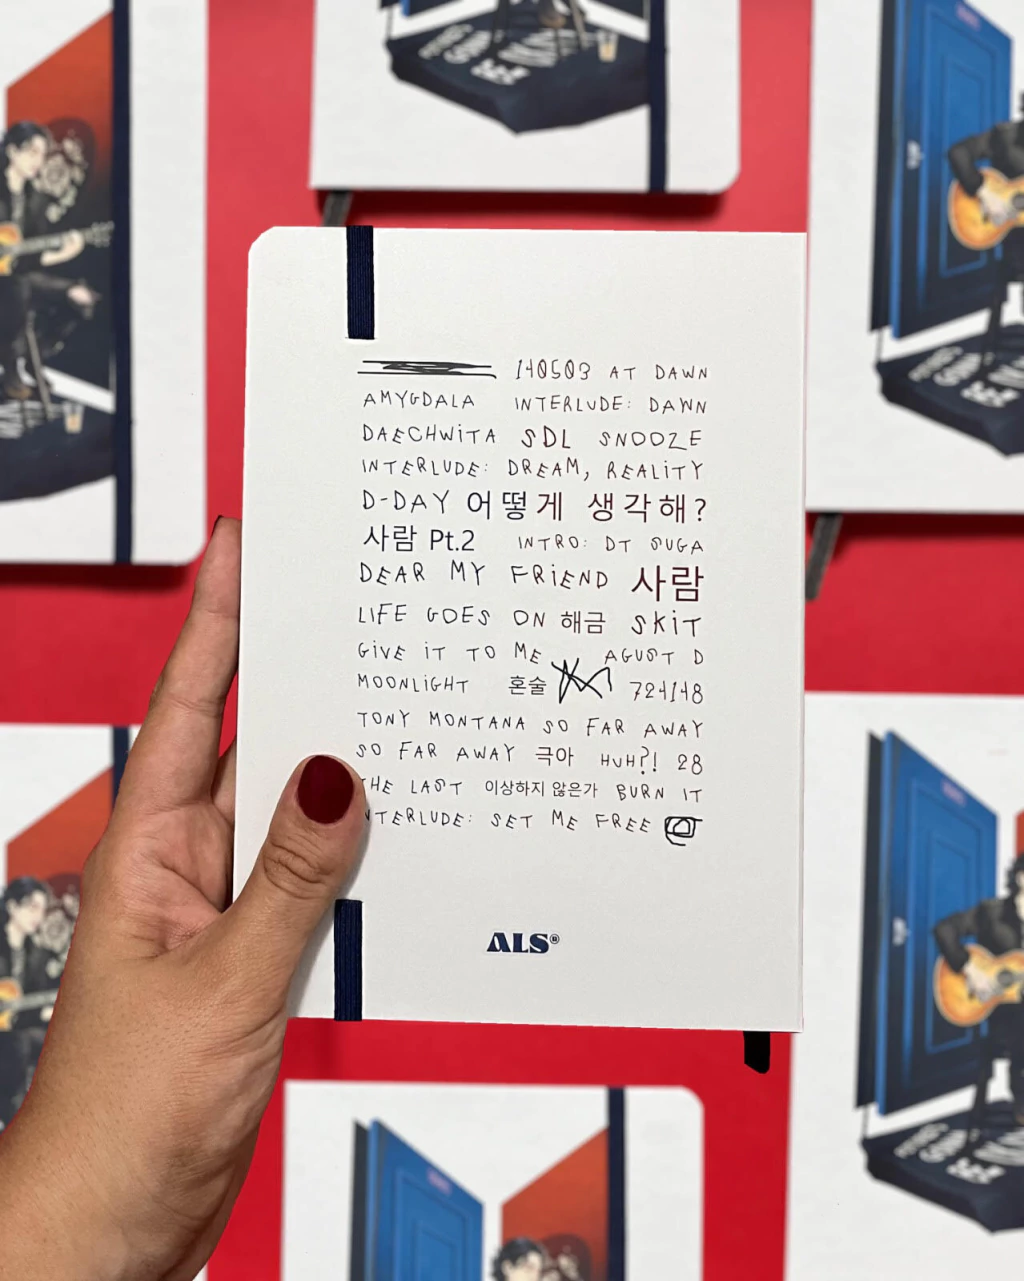 140503 AT DAWN
AMYGDALA INTERLUDE: DAWN
DAECHWITA SDL SNOOZE
INTERLUDE: DREAM, REALITY
D-DAY 어떻게 생각해?
사람 Pt.2 INTRO: DT SUGA
DEAR MY FRIEND 사람
LIFE GOES ON 해금 SKIT
GIVE IT TO ME AGUST D
MOONLIGHT 혼술 724148
TONY MONTANA SO FAR AWAY
SO FAR AWAY 극아 HUH?! 28
THE LAST 이상하지 않은가 BURN IT
INTERLUDE: SET ME FREE
ALS®